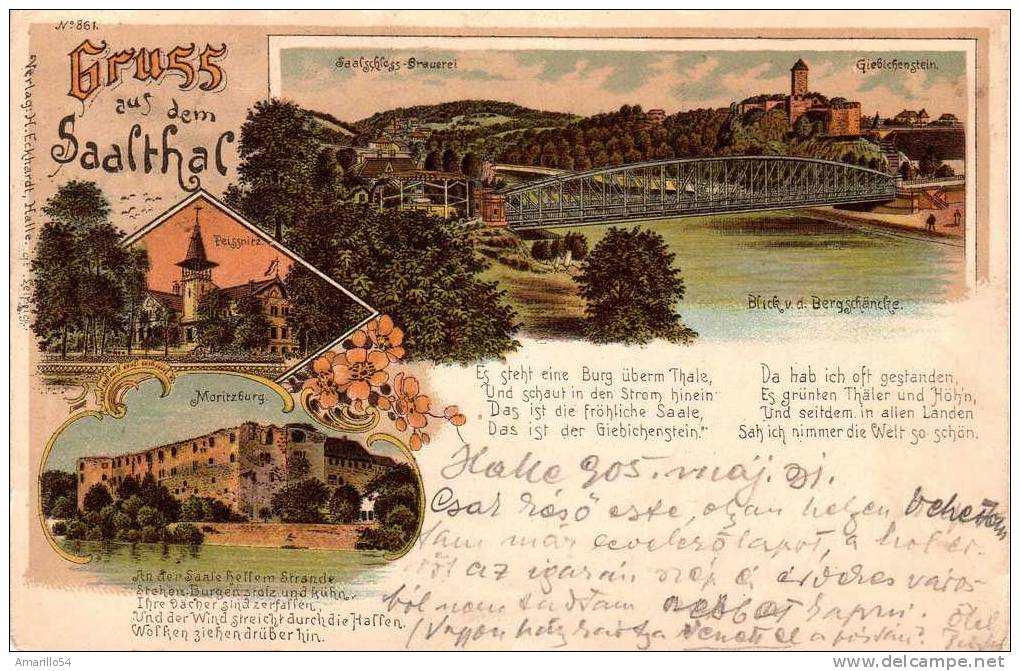 No 861.
Gruss
aus dem
Saalthal
Verlag: H. Eckhardt, Halle
Saalschloss-Brauerei
Giebichenstein.
Peissnitz.
Blick v. d. Bergschäncke.
Moritzburg.
Es steht eine Burg überm Thale,
Und schaut in den Strom hinein
Das ist die fröhliche Saale,
Das ist der Giebichenstein."
Da hab ich oft gestanden,
Es grünten Thäler und Höh'n,
Und seitdem in allen Landen
Sah ich nimmer die Welt so schön.
An der Saale hellem Strande
Stehen Burgen stolz und kühn.
Ihre Dächer sind zerfallen,
Und der Wind streicht durch die Hallen.
Wolken ziehen drüber hin.
Halle 905. máj. 31.
Csak késő este, olyan helyen vehettem
már levelezőlapot, a hol
az igazán szép és érdekes város-
ból nem tudtam kapni.
a
Amarillo54
www.delcampe.net